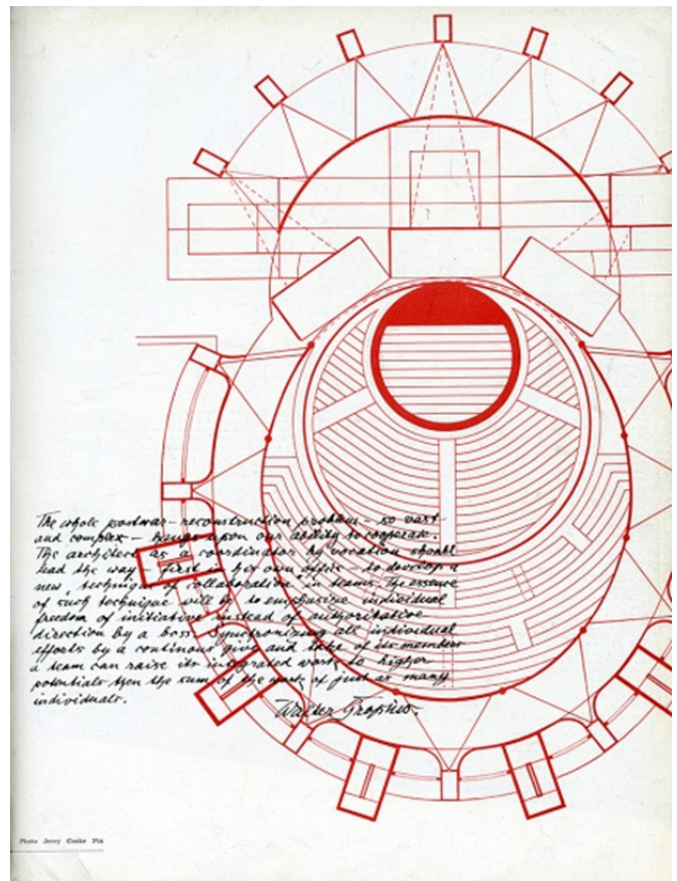 The whole postwar – reconstruction problem – so vast
and complex – hangs upon our ability to cooperate.
The architect as a coordinator by vocation should
lead the way – first in his own office – to develop a
new „technique of collaboration" in teams. The essence
of such technique will be to emphasise individual
freedom of initiative instead of authoritative
direction by a boss. Synchronizing all individual
efforts by a continous give and take of its members
a team can raise its integrated work to higher
potentials then the sum of the work of just as many
individuals.
Walter Gropius.
Photo Jerry Cooke Pix